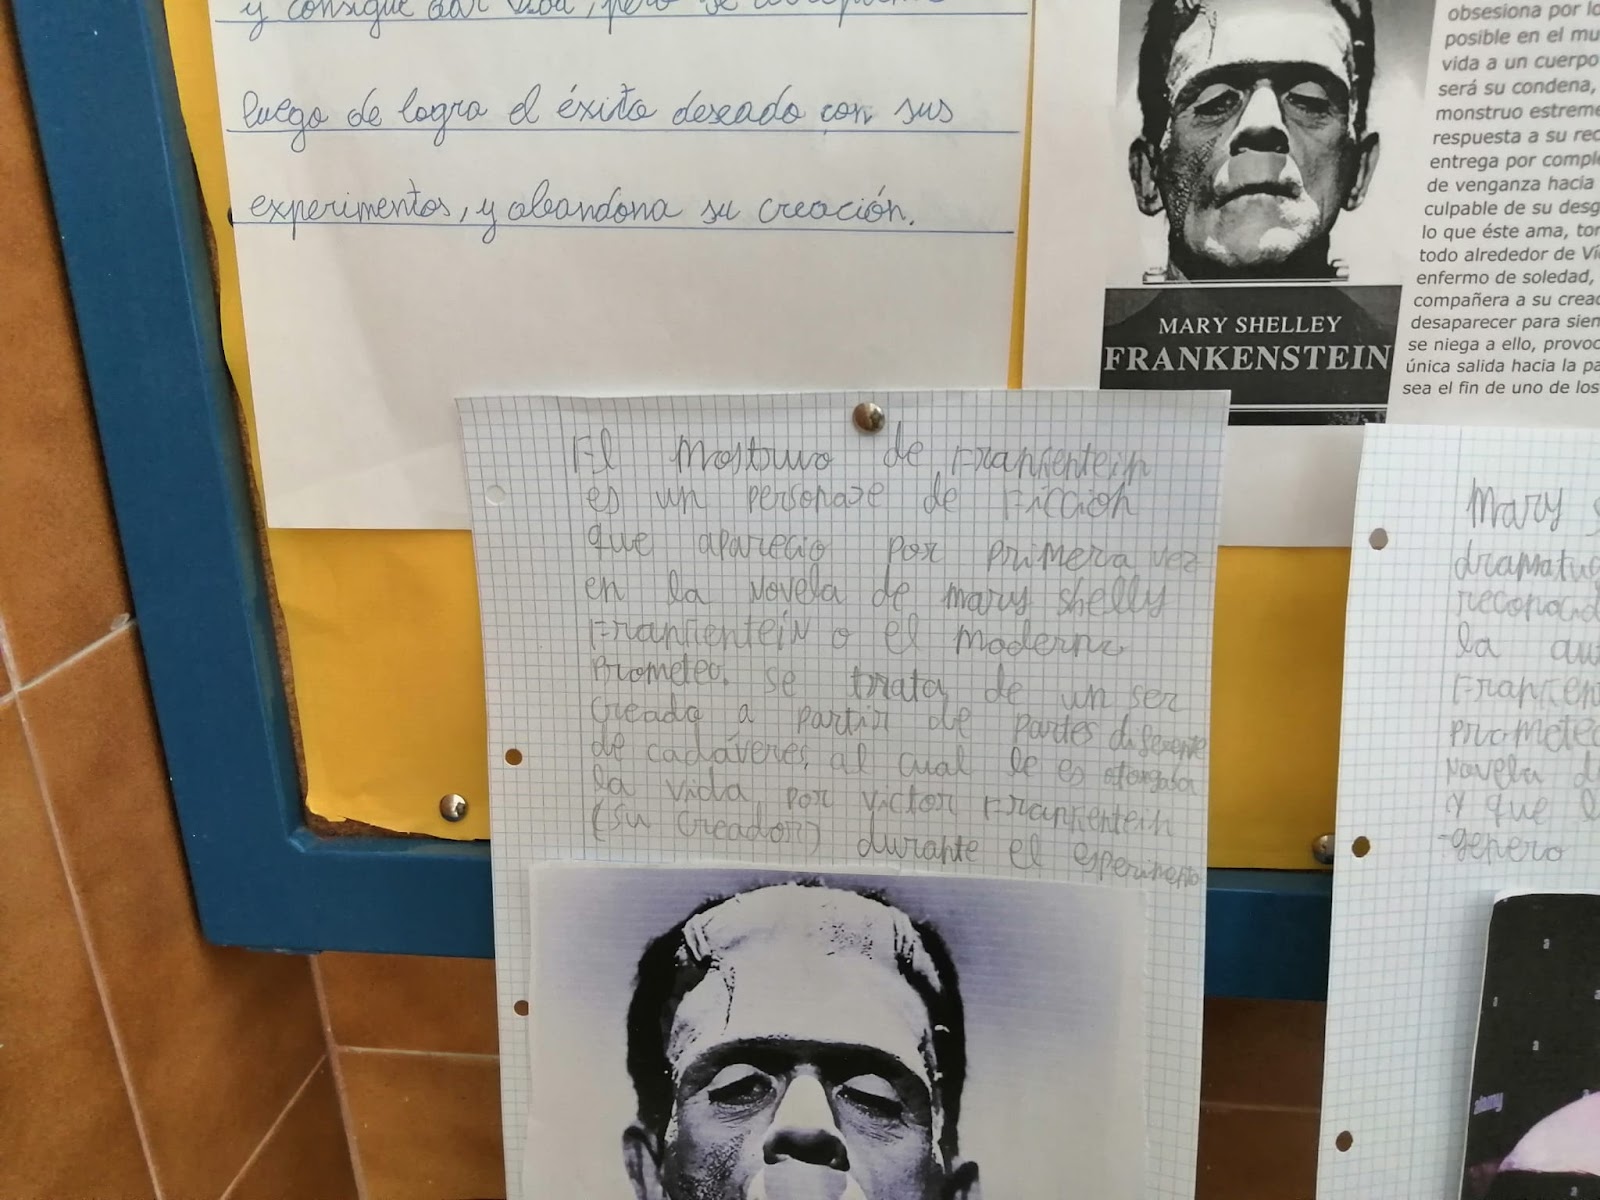 y consigue dar vida, pero se
luego de logra el éxito deseado con sus
experimentos, y abandona su creación.
obsesiona por lo
posible en el mu
vida a un cuerpo
será su condena,
monstruo estreme
respuesta a su rec
entrega por comple
de venganza hacia
culpable de su desg
lo que éste ama, tor
todo alrededor de Ví
enfermo de soledad,
compañera a su creac
desaparecer para sien
se niega a ello, provoc
única salida hacia la pa
sea el fin de uno de los
MARY SHELLEY
FRANKENSTEIN
El mostruo de Frankentein
es un personaje de Ficcion
que aparecio por primera vez
en la novela de mary shelly
Frankentein o el moderno
Prometeo. se trata de un ser
creado a partir de partes diferente
de cadáveres, al cual le es otorgada
la vida por victor Frankentein
(su creador) durante el esperimento
Mary S
dramatug
reconocid
la au
Franken
prometeo
novela d
y que l
genero
a
a
a
a